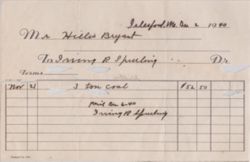 Islesford, Me. Dec 2 1940
Mr Hillis Bryant
To Irving R Spurling Dr
Terms
Nov 21 3 ton coal $52 50
Paid Dec 2-40
Irving R Spurling